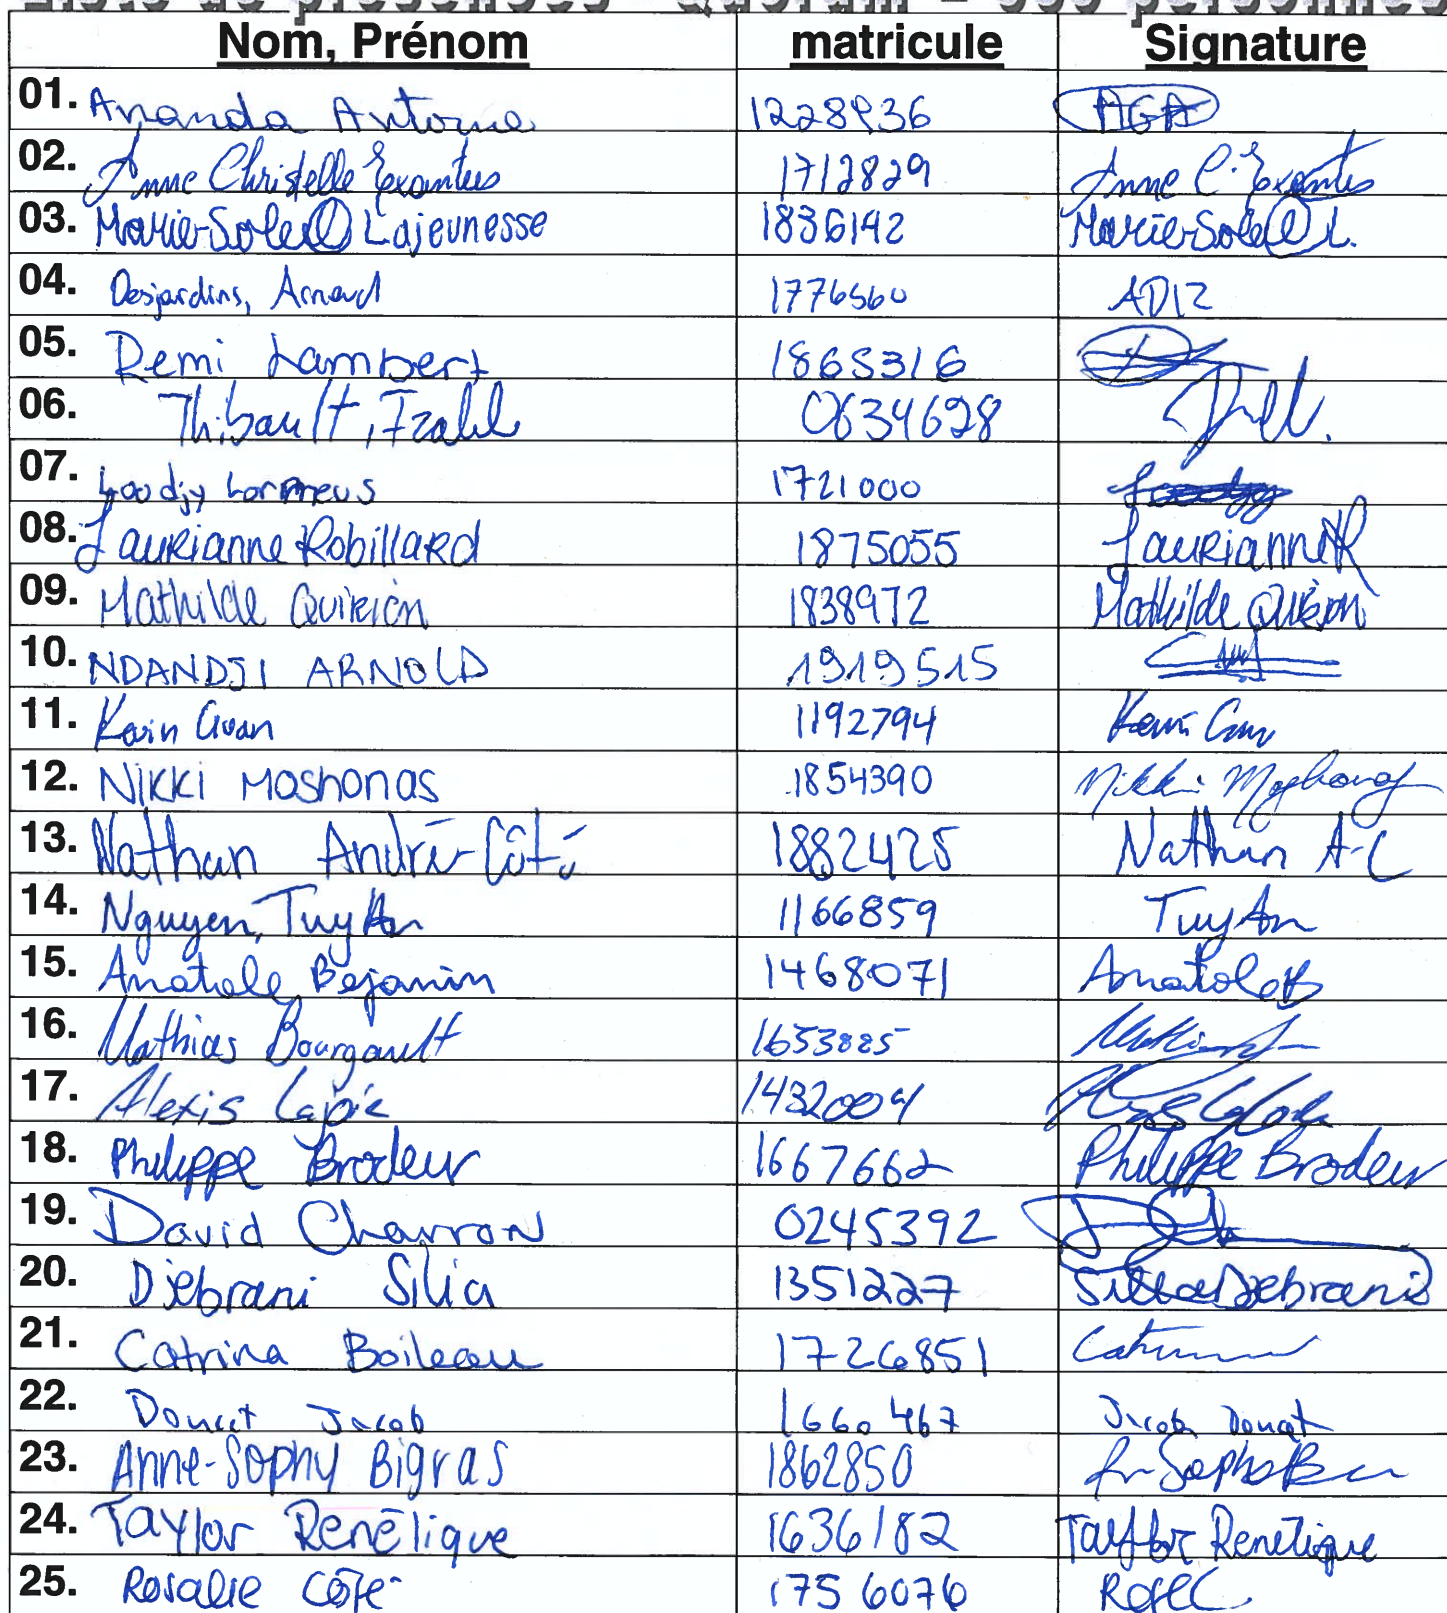 Liste de présences - Quorum = 300 personnes
Nom, Prénom matricule Signature
01. Ananda Antoine 1228936 AGA
02. Anne Christelle Exantus 1712829 Anne C. Exantus
03. Marie-Soleil Lajeunesse 1836142 Marie-Soleil L.
04. Desjardins, Arnaud 1776560 AD12
05. Remi Lambert 1865316
06. Thibault, 0634628
07. Loodjy Lormeus 1721000
08. Laurianne Robillard 1875055 Laurianne R
09. Mathilde Quirion 1838972 Mathilde Quirion
10. NDANDJI ARNOLD 1919515
11. Kevin Guan 1192794
12. Nikki Moshonas 1854390 Nikki Moshonas
13. Nathan André-Côté 1882425 Nathan A-C
14. Nguyen, Tuy An 1166859 Tuy An
15. Anatole Bejanin 1468071 Anatole B
16. Mathias Bourgault 1653885
17. Alexis Lajoie 1432004
18. Philippe Brodeur 1667662 Philippe Brodeur
19. David Charron 0245392
20. Djebrani Silia 1351227 Silia Djebrani
21. Catrina Boileau 1726851
22. Doucet Jacob 1660467 Jacob Doucet
23. Anne-Sophy Bigras 1862850
24. Taylor Renélique 1636182 Taylor Renelique
25. Rosalie Côté 1756076 RoseC